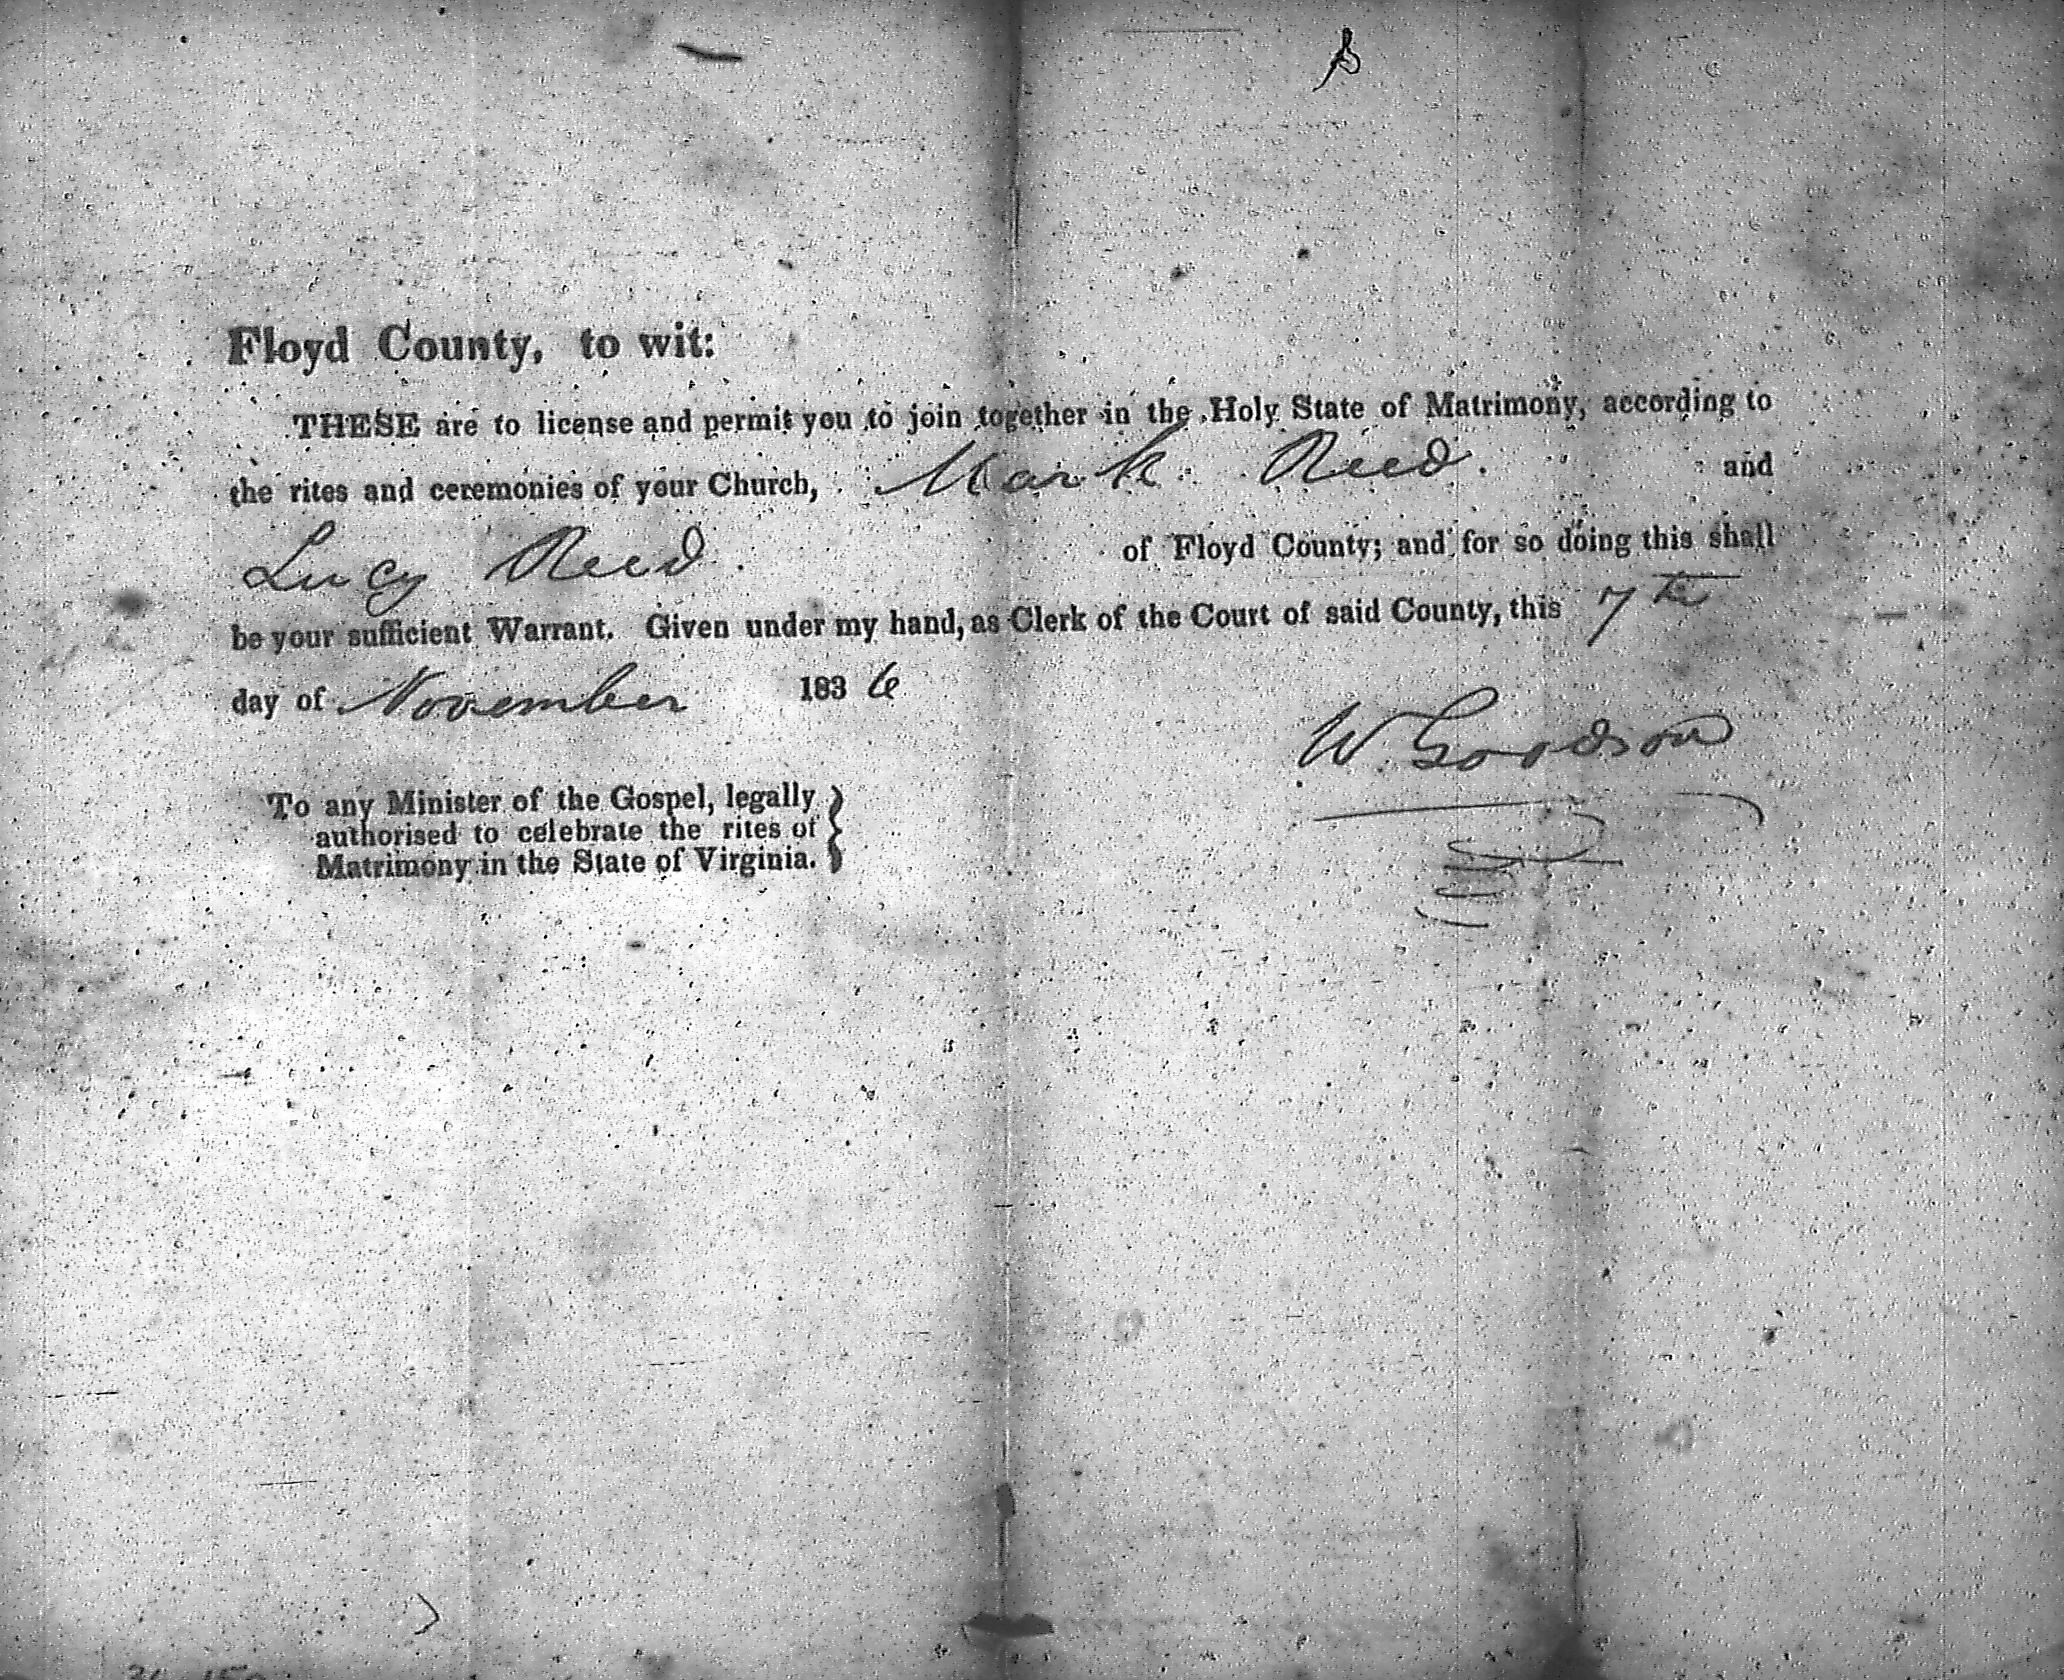 Floyd County, to wit:
THESE are to license and permit you to join together in the Holy State of Matrimony, according to
the rites and ceremonies of your Church, Mark Reed. and
Lucy Reed. of Floyd County; and for so doing this shall
be your sufficient Warrant. Given under my hand, as Clerk of the Court of said County, this 7th
day of November 1836
W. Goodson
To any Minister of the Gospel, legally
authorised to celebrate the rites of
Matrimony in the State of Virginia.